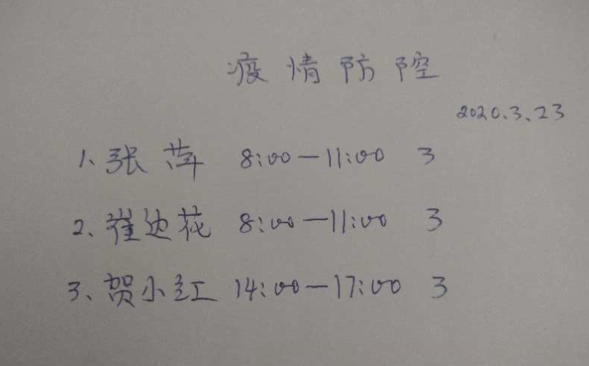 疫情防控
2020.3.23
1、张萍 8:00—11:00 3
2、崔边花 8:00—11:00 3
3、贺小红 14:00—17:00 3